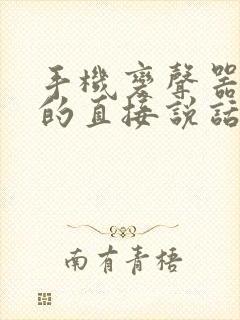 手機變聲器
的直接說話
南有青梧